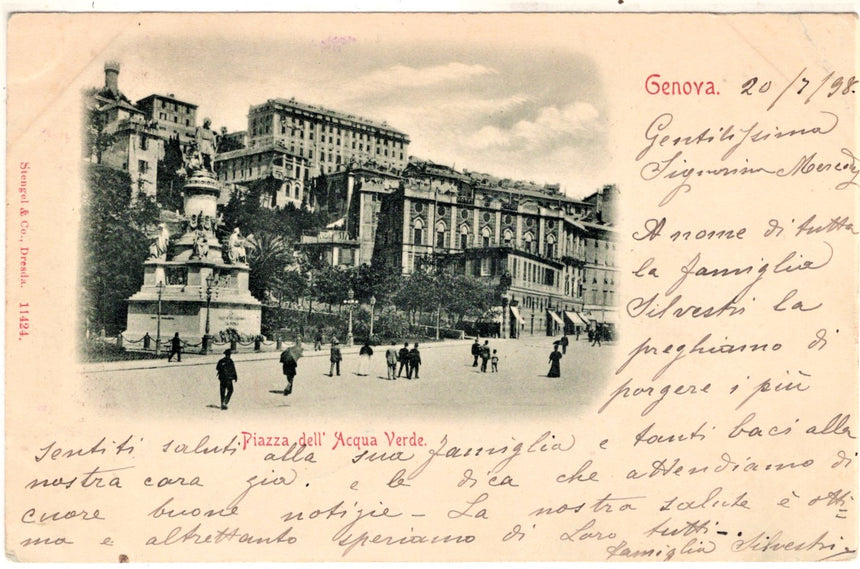 Genova. 20/7/98.
Gentilissima
Signorina Mercedy
A nome di tutta
la famiglia
Silvestri la
preghiamo di
porgere i più
Piazza dell' Acqua Verde.
sentiti saluti alla sua famiglia e tanti baci alla
nostra cara gia. e le dica che attendiamo di
cuore buone notizie - La nostra salute è otti=
ma e altrettanto speriamo di Loro tutti -.
famiglia Silvestri
Stengel & Co., Dresda. 11424.